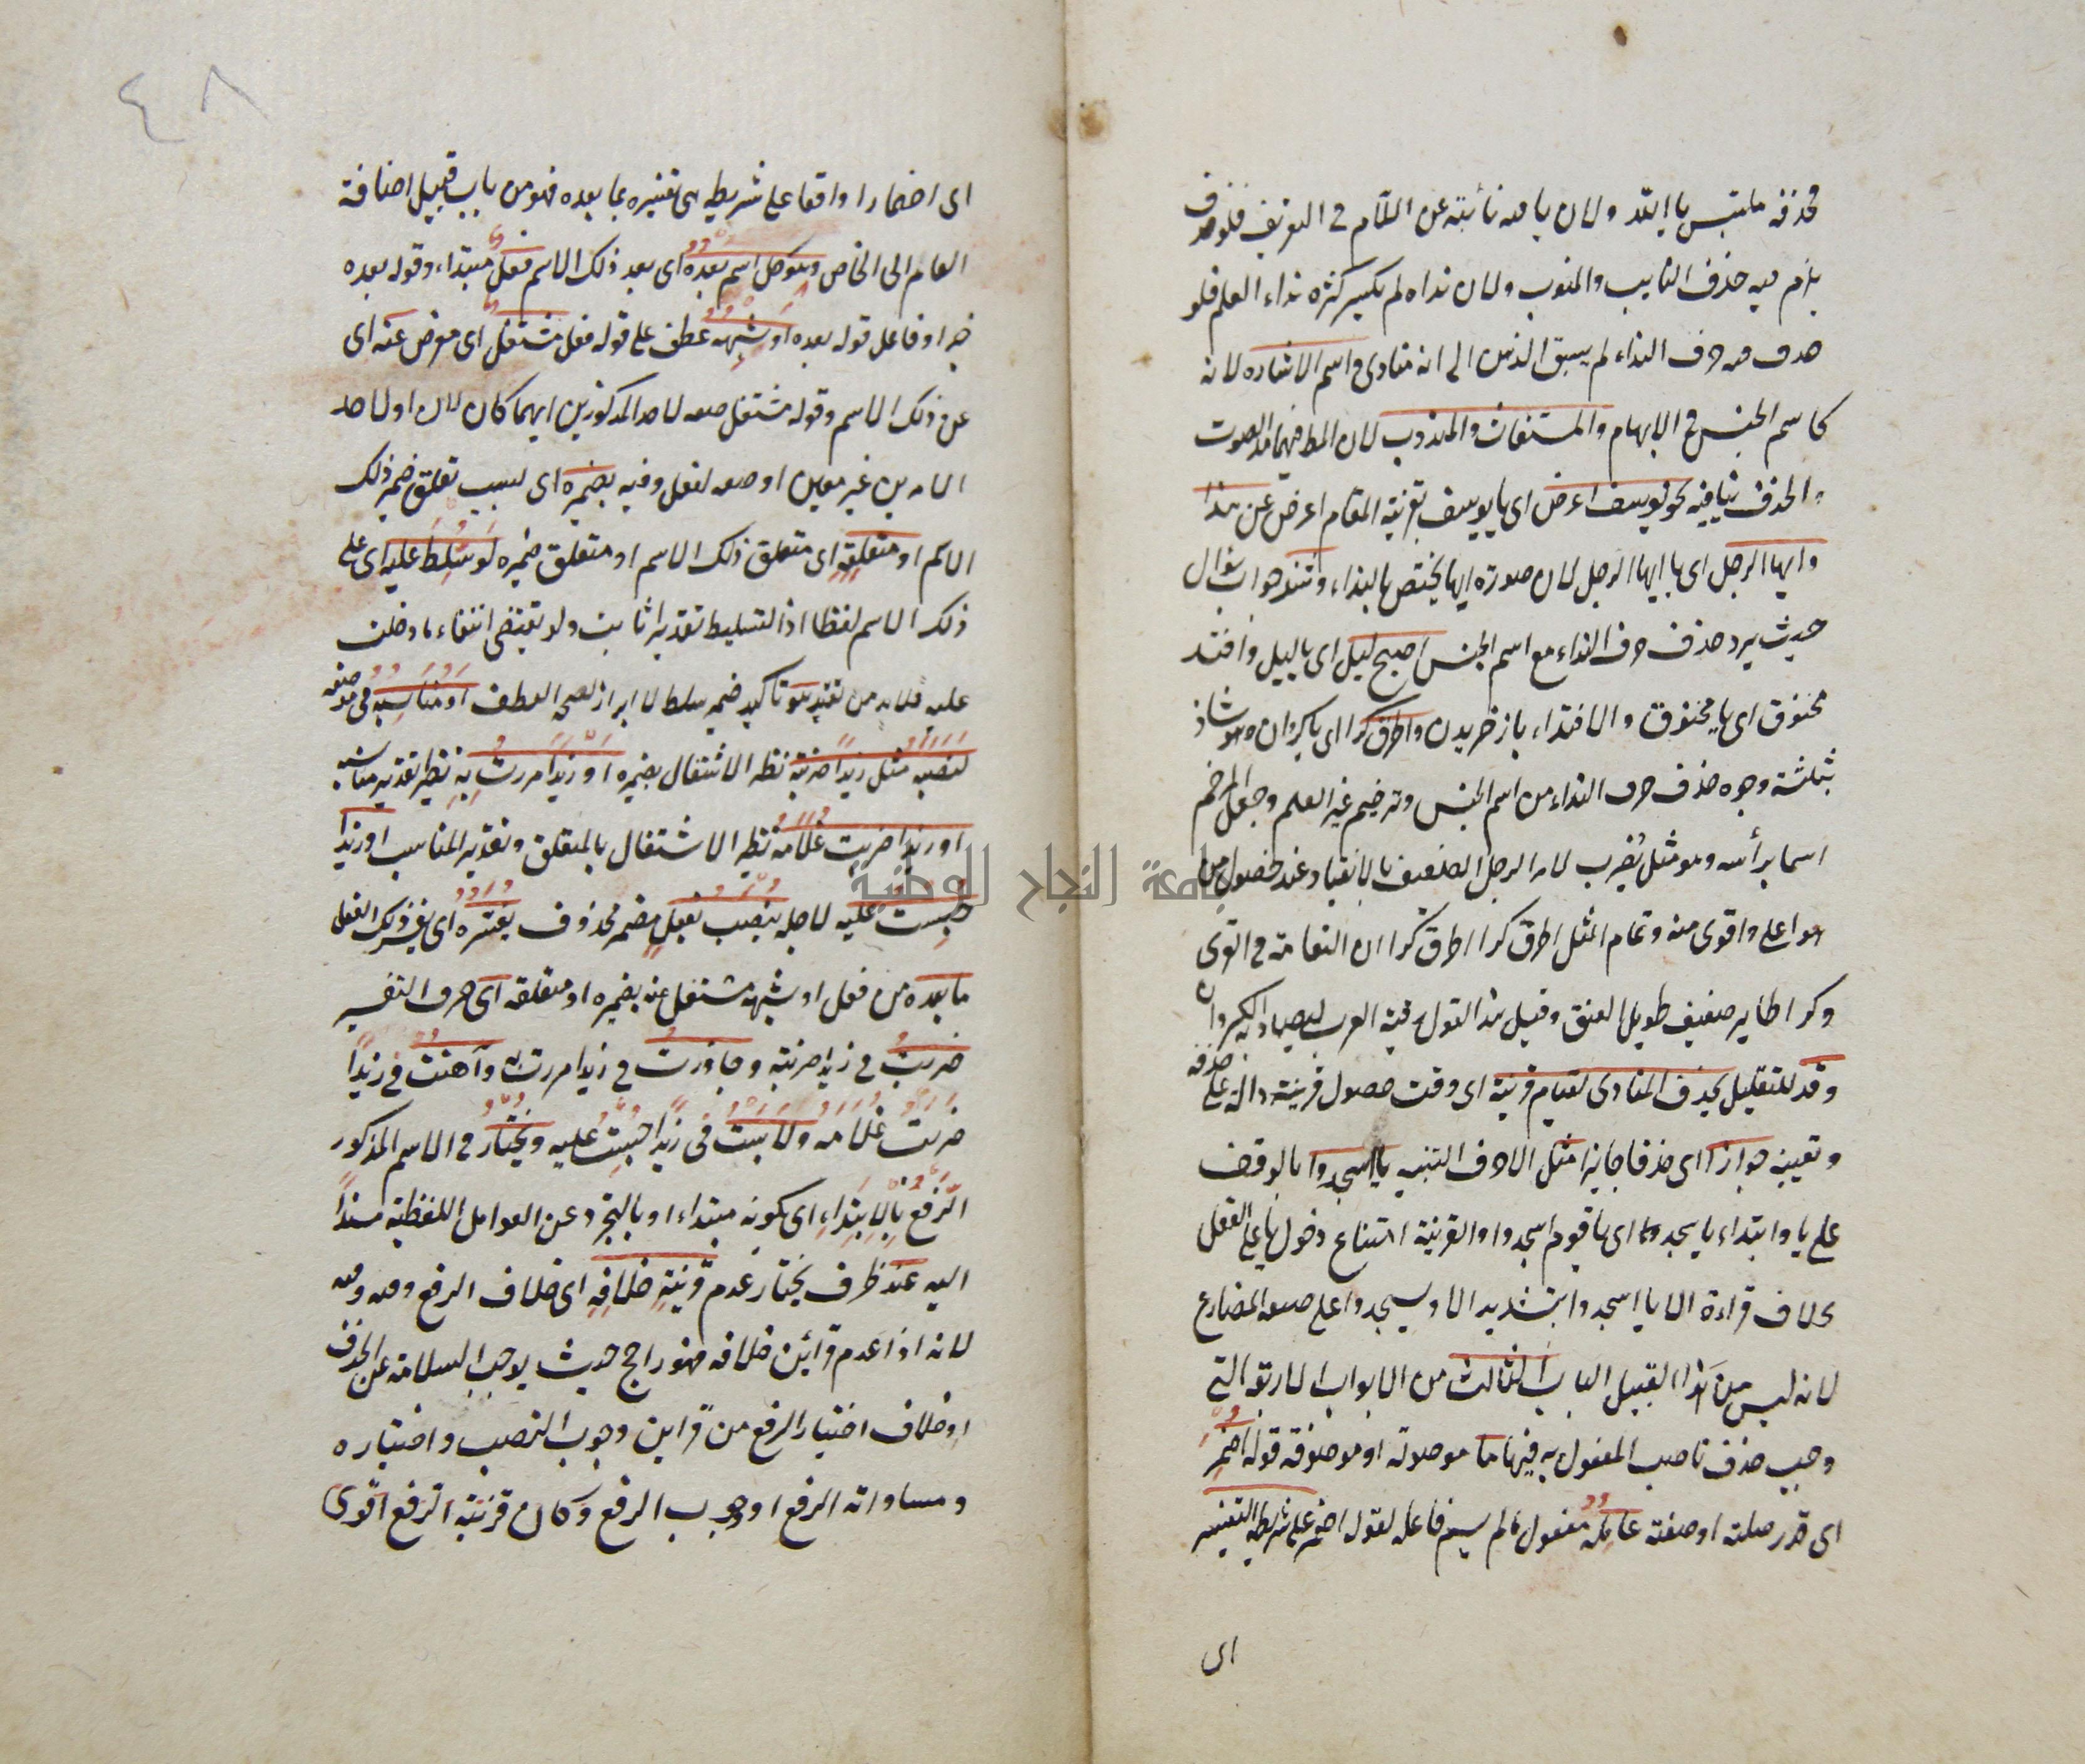 فحذفه ملتبس بالله ولان يا فيه نائبة عن اللام في التعريف فلو حذف
يلزم فيه حذف النايب والمنوب ولان نداه لم يكسر كثرة نداء العلم فلو
حذف فيه حرف النداء لم يسبق الذهن الى انه منادى واسم الاشارة لانه
كاسم الجنس في الابهام والمستغاث والمندوب لان المط فيهما مد الصوت
والحذف ينافيه نحو يوسف اعرض اى يا يوسف بقرينة المقام اعرض عن هذا
وايها الرجل اى يا ايها الرجل لان صورة ايها يختص بالنداء وشذ جواب سؤال
حيث يرد حذف حرف النداء مع اسم الجنس اصبح ليل اى يا ليل وافتد
مخنوق اى يا مخنوق والافتداء باز خريدن واطرق كرا اى يا كروان وهو شاذ
بثلثة وجوه حذف حرف النداء من اسم الجنس وترخيم غير العلم وجعل المرخم
اسما برأسه وهو مثل يضرب لامر الرجل الضعيف بالانقياد عند حضول من
هو اعلى واقوى منه وتمام المثل اطرق كرا اطرق كرا ان النعامة في القرى
وكرا طاير ضعيف طويل العنق وقيل هذا القول رقية العرب ليصيدوا الكيروان
وقد للتقليل يحذف المنادى لقيام قرينة اى وقت حصول قرينة دالة على حذفه
وتعيينه جوازا اى حذفا جايزا مثل الا حرف التنبيه يا اسجدوا بالوقف
على يا وابتداء يا سجدوا اى يا قوم اسجدوا والقرينة امتناع دخول يا على الفعل
بخلاف قراءة الا يا اسجدوا بتشديد الا ويسجدوا على صيغة المضارع
لانه ليس من هذا القبيل الباب الثالث من الابواب الاربعة التي
وجب حذف ناصب المفعول به فيها ما موصولة او موصوفة قوله اضمر
اى قدر صلته او صفته عامله مفعول ما لم يسم فاعله لقوله اضمر على شريطة التفسير
اى
٤٨
اى اضمارا واقعا على شريطة هي تفسيره بما بعده فهو من باب قبيل اضافة
العام الى الخاص وهو كل اسم بعده اى بعد ذلك الاسم فعل مبتداء وقوله بعده
خبر او فاعل قوله بعده او شبهه عطف على قوله فعل مشتغل اى معرض عنه اى
عن ذلك الاسم وقوله مشتغل صفة لاحد المذكورين ايهما كان لان او لاحد
الامرين غير معين او صفة لفعل وفيه بضميره اى لسبب تعلق ضمير ذلك
الاسم او متعلقه اى متعلق ذلك الاسم او متعلق ضميره لو سلط عليه اى على
ذلك الاسم لفظا اذ التسليط تقديرا ثابت ولو تقتضى انتفاء ما دخلت
عليه فلابد من تقييد هو تاكيد ضمير سلط لا ابراز لصحة العطف او مناسبه في موضعه
لنصبه مثل زيدا ضربته نظير الاشتغال بضميره او زيدا مررت به نظير تقدير مناسبه
او زيدا ضربت غلامه نظير الاشتغال بالمتعلق وتقدير المناسب او زيدا
حبست عليه لاجله ينصب بفعل مضمر محذوف يفسره اى يفسر ذلك الفعل
ما بعده من فعل او شبهه مشتغل عنه بضميره او متعلقه اى حرف التفسير
ضربت في زيدا ضربته وجاوزت في زيدا مررت به واهنت في زيدا
ضربت غلامه ولابست في زيدا حبست عليه ويختار في الاسم المذكور
الرفع بالابتداء اى بكونه مبتداء او بالتجرد عن العوامل اللفظية مسندا
اليه عند ظرف يختار عدم قرينة خلافه اى خلاف الرفع وفيه
لانه اذا عدم قرائن خلافه فهو راجح حيث يوجب السلامة عن الحذف
او خلاف اختيار الرفع من قراين وجوب النصب واختياره
ومساواته الرفع او وجوب الرفع وكان قرينة الرفع اقوى
جامعة النجاح الوطنية